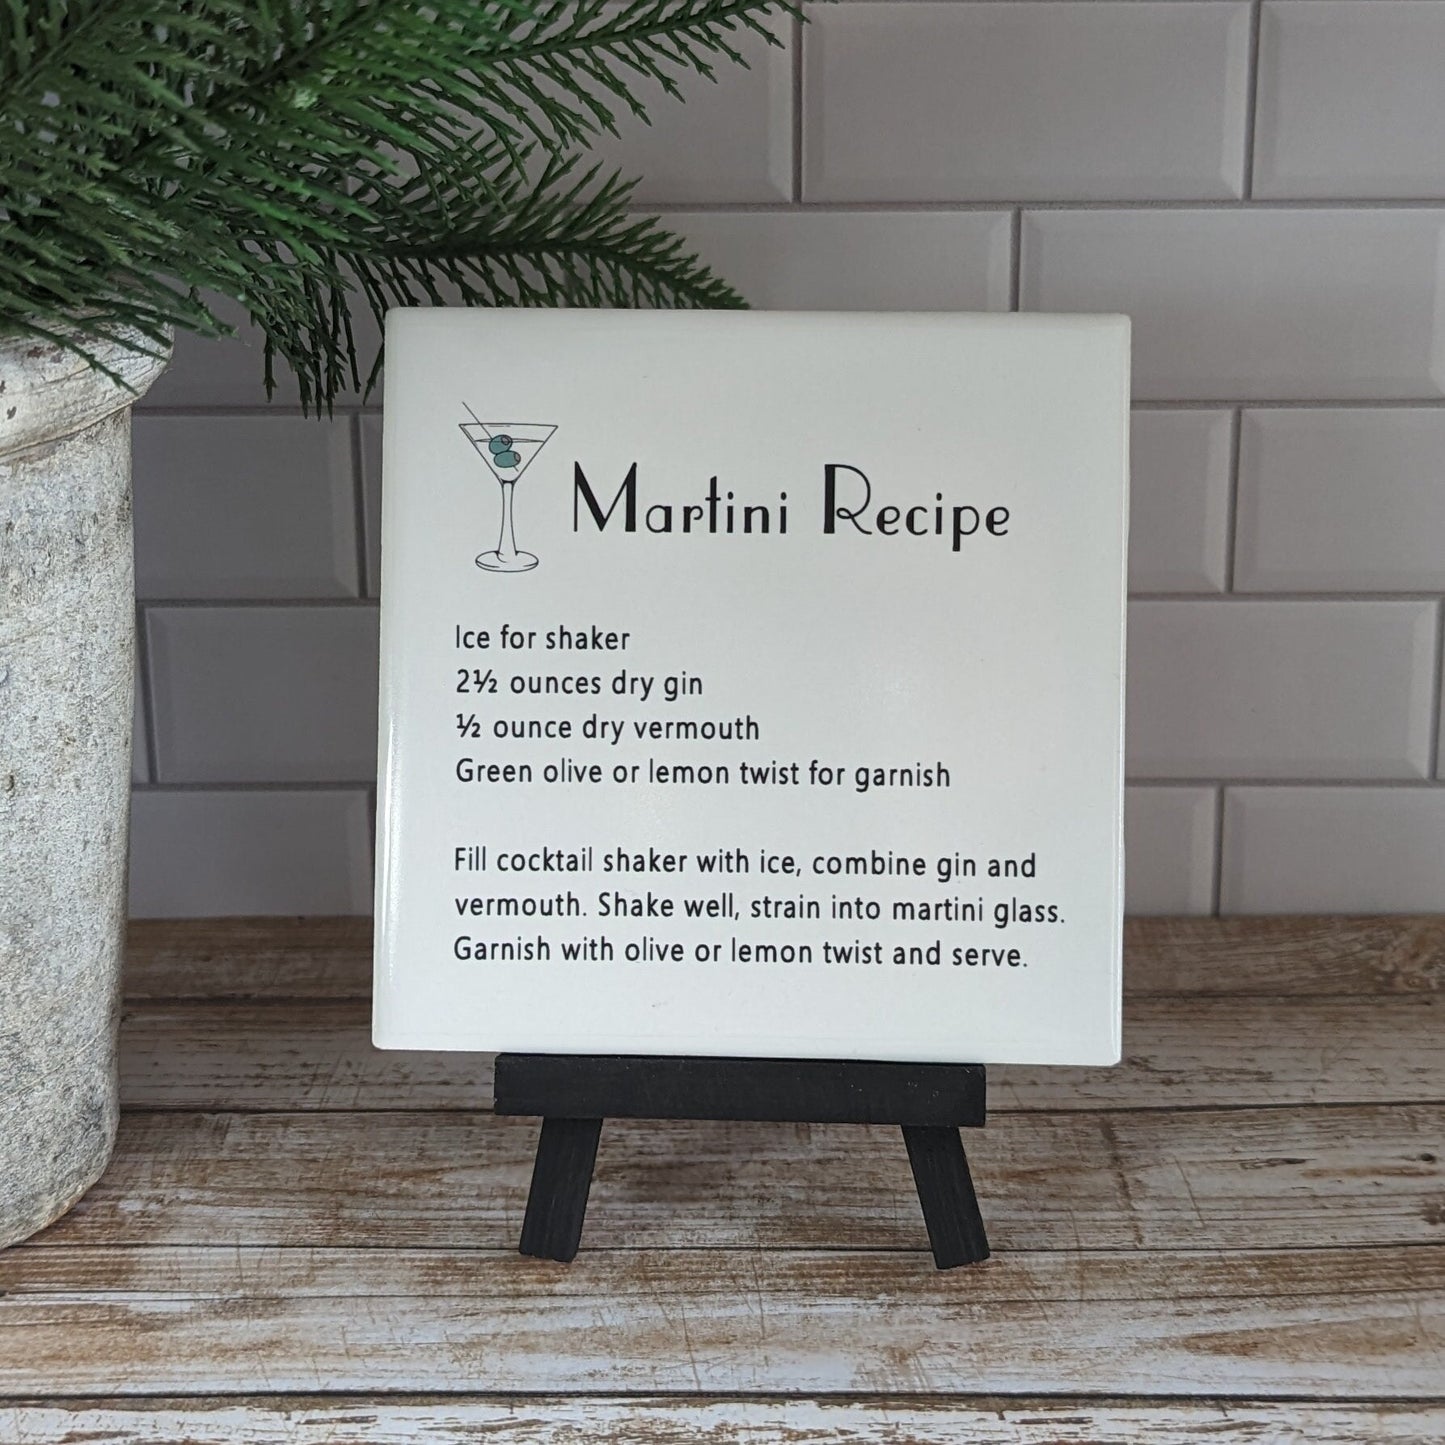 Martini Recipe
Ice for shaker
2½ ounces dry gin
½ ounce dry vermouth
Green olive or lemon twist for garnish
Fill cocktail shaker with ice, combine gin and
vermouth. Shake well, strain into martini glass.
Garnish with olive or lemon twist and serve.